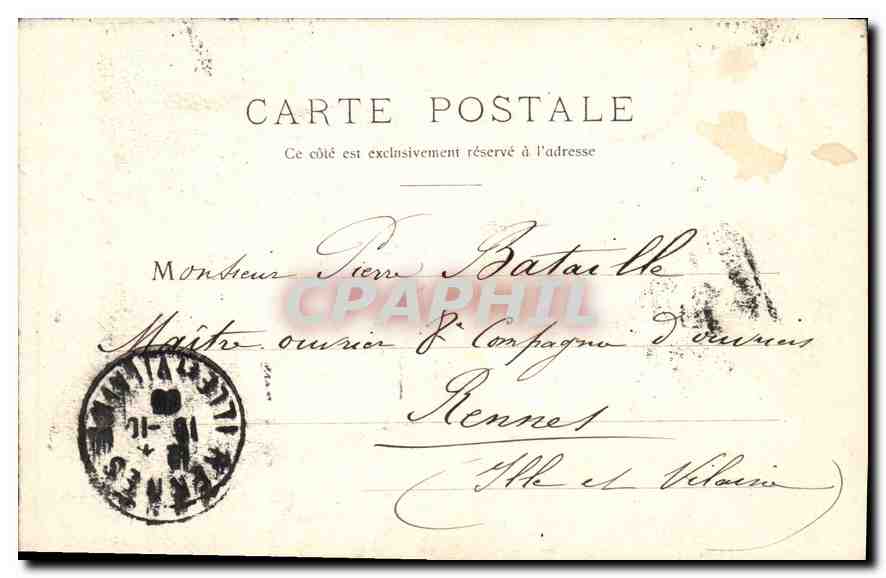 CARTE POSTALE
Ce côté est exclusivement réservé à l'adresse
Monsieur Pierre Bataille
CPAPHIL
Maître ouvrier 8e Compagnie d'ouvriers
Rennes
(Ille et Vilaine)
RENNES
ILLE-ET-VILAINE